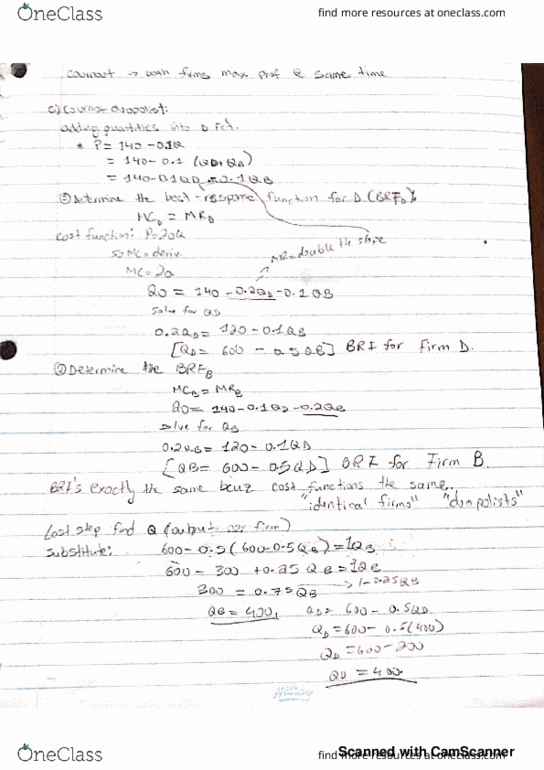 OneClass
find more resources at oneclass.com
Cournot → both firms max prof @ same time
c) Cournot duopolist:
adding quantities into D. Fct.
* P = 140 - 0.1Q
= 140 - 0.1 (QD + QB)
= 140 - 0.1QD - 0.1QB
① Determine the best-response function for D (BRFD):
MCD = MRD
Cost function: P=20Q
so MC = deriv.
MC = 20
MR = double the slope
20 = 140 - 0.2QD - 0.1QB
solve for QD
0.2QD = 120 - 0.1QB
[QD = 600 - 0.5QB] BRF for Firm D.
② Determine the BRFB
MCB = MRB
20 = 140 - 0.1QD - 0.2QB
solve for QB
0.2QB = 120 - 0.1QD
[QB = 600 - 0.5QD] BRF for Firm B.
BRF's exactly the same cost functions the same.
"identical firms" "duopolists"
Last step find Q (output per firm)
Substitute: 600 - 0.5(600 - 0.5QB) = 1QB
600 - 300 + 0.25 QB = 1QB
300 = 0.75QB → 1 - 0.25QB
QB = 400, QD = 600 - 0.5QD
QD = 600 - 0.5(400)
QD = 600 - 200
QD = 400
OneClass
find more resources at oneclass.com
Scanned with CamScanner